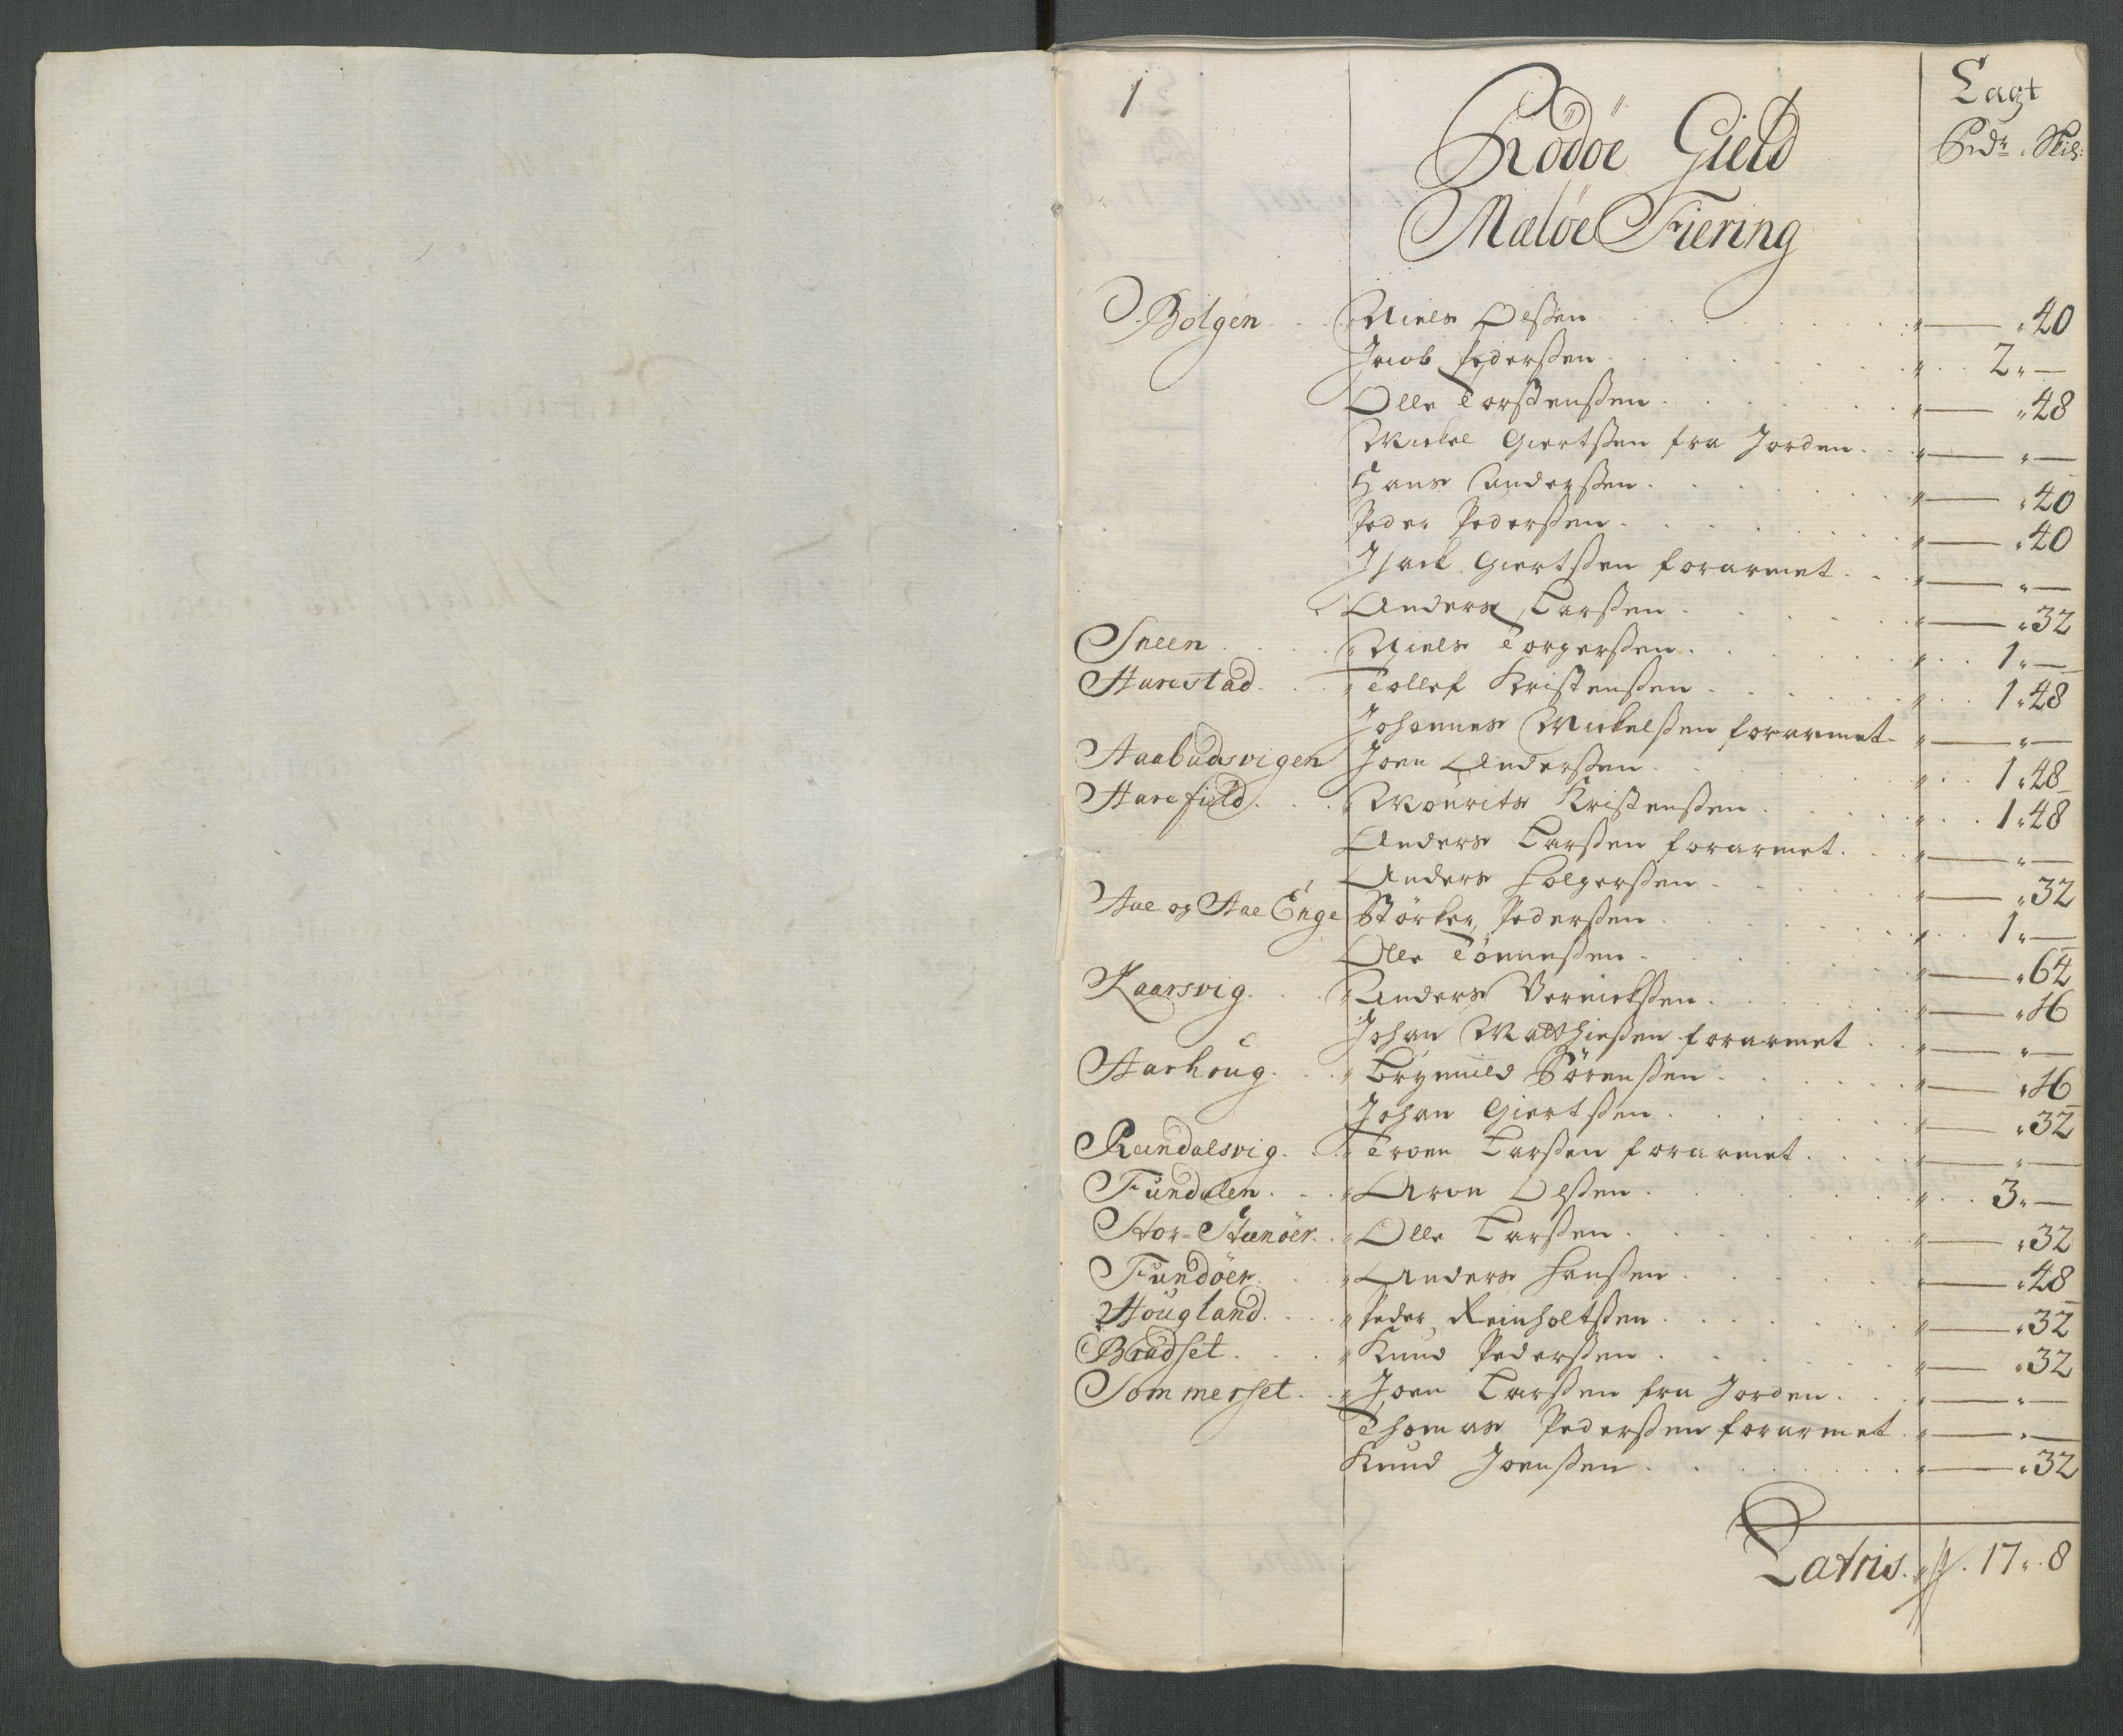 1
Lagt
Rödöe Gield
Rdr. Skil:
Maløe Fiering
Bolgen . . . Niels Olßen . . . " — " 40
Jacob Pederßen . . . " . . 2 " —
Olle Torstenßen . . . " — " 48
Mickel Giertßen fra Jorden . . " — " —
Hans Anderßen . . . " — " 40
Peder Pederßen . . . " — " 40
Isack Giertßen forarmet . . " — " —
Anders Larßen . . . " — " 32
Sneen . . . " Niels Torgerßen . . . " . . 1 " —
Harestad . . " Tollef Kristenßen . . . " . . 1 " 48
Johannes Mickelßen forarmet - " — " —
Aabudsvigen Joen Anderßen . . . " . . 1 " 48
Harefield . . . " Mourits Kristenßen . . . " . . 1 " 48
Anders Larßen forarmet . . . " — " —
Anders Holgerßen . . . " — " 32
Aae og Aae Enge Störker Pederßen . . . " . . 1 " —
Olle Tönneßen . . . " — " 64
Kaarsvig . . . " Anders Vernickßen . . . " — " 16
Johan Matthießen forarmet . . " — " —
Aarhoug . . . " Brynnild Sörenßen . . . " — " 16
Johan Giertßen . . . " — " 32
Rendalsvig . . " Troen Larßen forarmet . . . " — " —
Fundalen . . . " Aron Olßen . . . " . . 3 " —
Stor-Stenöer . . " Olle Larßen . . . " — " 32
Fundöer . . . " Anders Hanßen . . . " — " 48
Hougland . . . " Peder Reinholtßen . . . " — " 32
Bradset . . . " Knud Pederßen . . . " — " 32
Sommerset . . " Joen Larßen fra Jorden . . . " — " —
Thomas Pederßen forarmet . " — " —
Knud Joenßen . . . " — " 32
Latris . " . 17 " 8